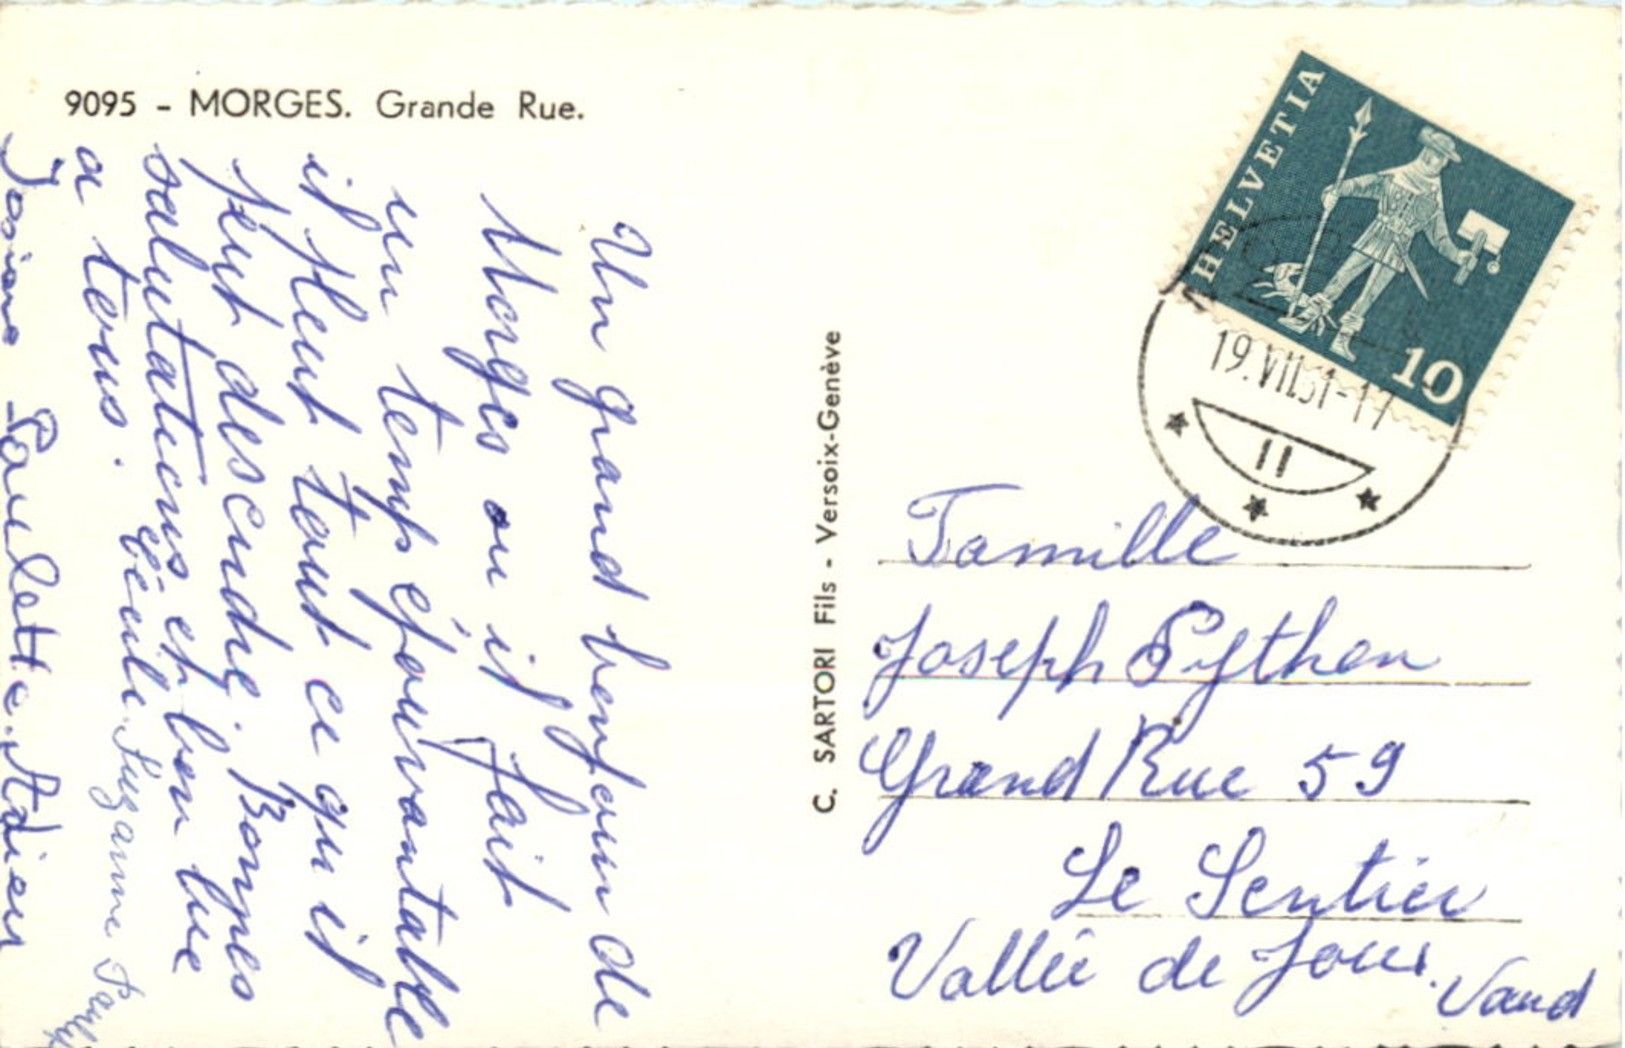 9095 - MORGES. Grande Rue.
Un grand bonjour de
Morges ou il fait
un temps épouvantable
il pleut tout ce qu il
peut descendre. Bonnes
salutations et bon vue
a tous. Cécile. Suzanne
Josiane Paulette. Adieu
C. SARTORI Fils - Versoix-Genève
HELVETIA
10
19.VII.61-17
11
Famille
Joseph Python
Grand Rue 59
Le Sentier
Vallée de Joux. Vaud